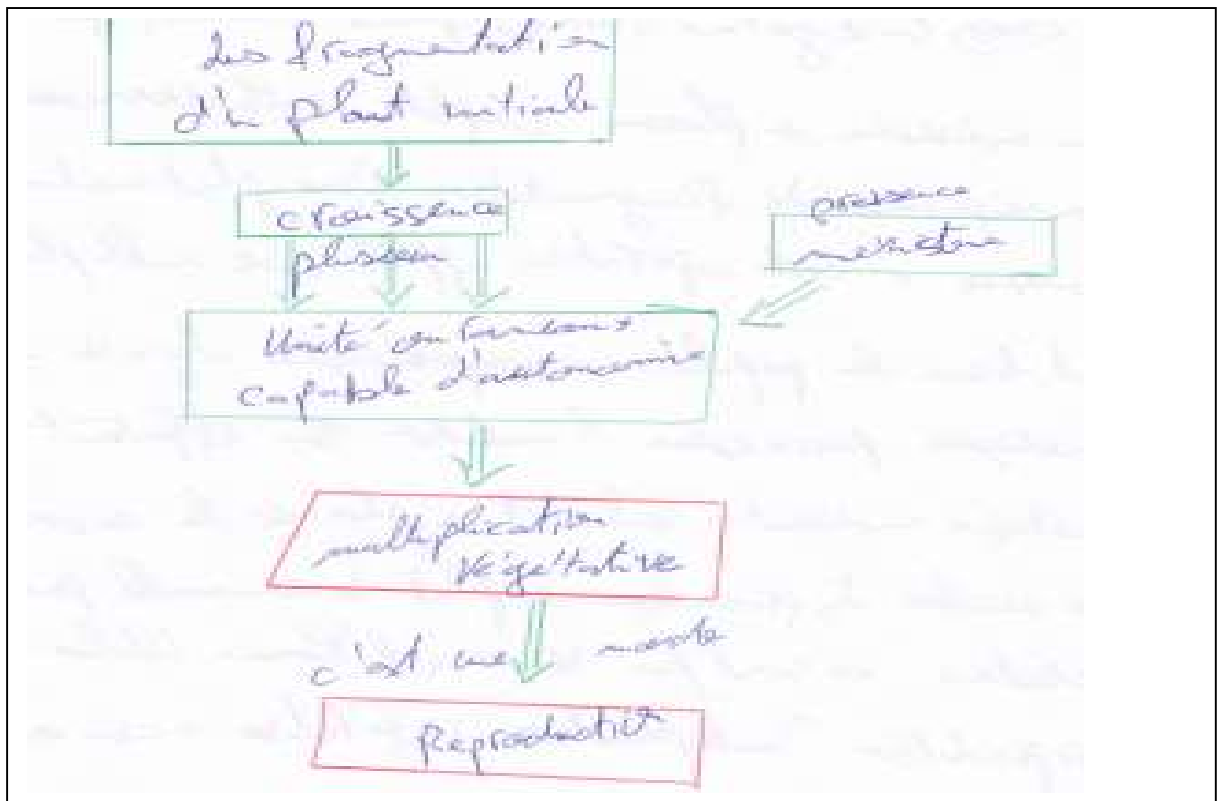 des fragmentation
d'un plant initiale
croissence
plusieur
pressence
méristeme
Unité ou
capable d'autonomie
multiplication
végétative
c'est une
Reproduction